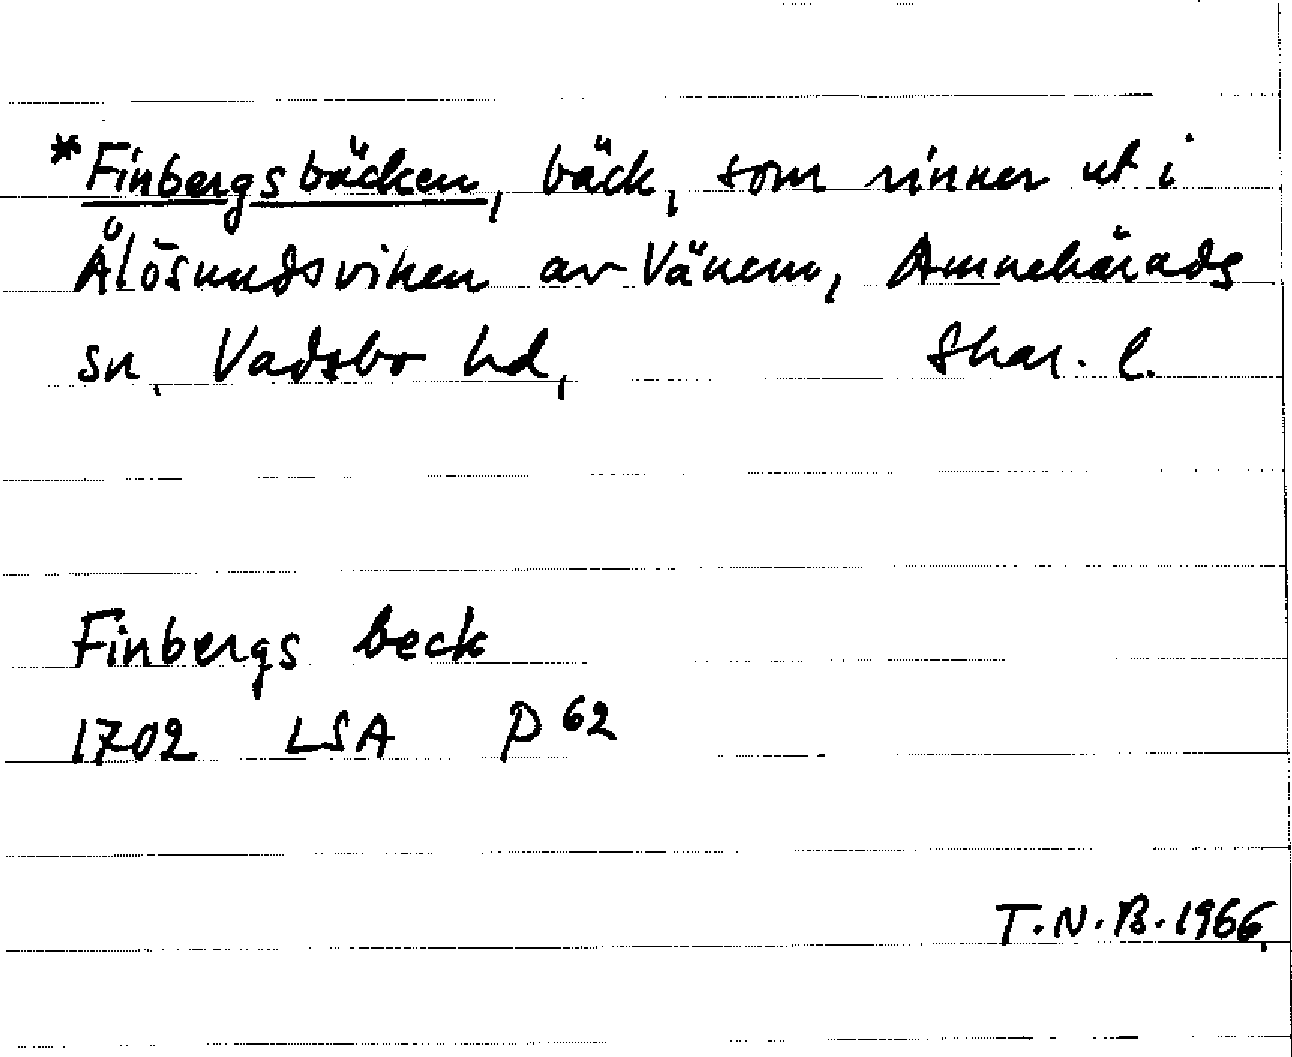 *Finbergsbäcken, bäck, som rinner ut i
Ålösundsviken av Vänern, Amnehärads
sn, Vadsbo hd, Skar. l.
Finbergs beck
1702 LSA P 62
T.N.B. 1966.